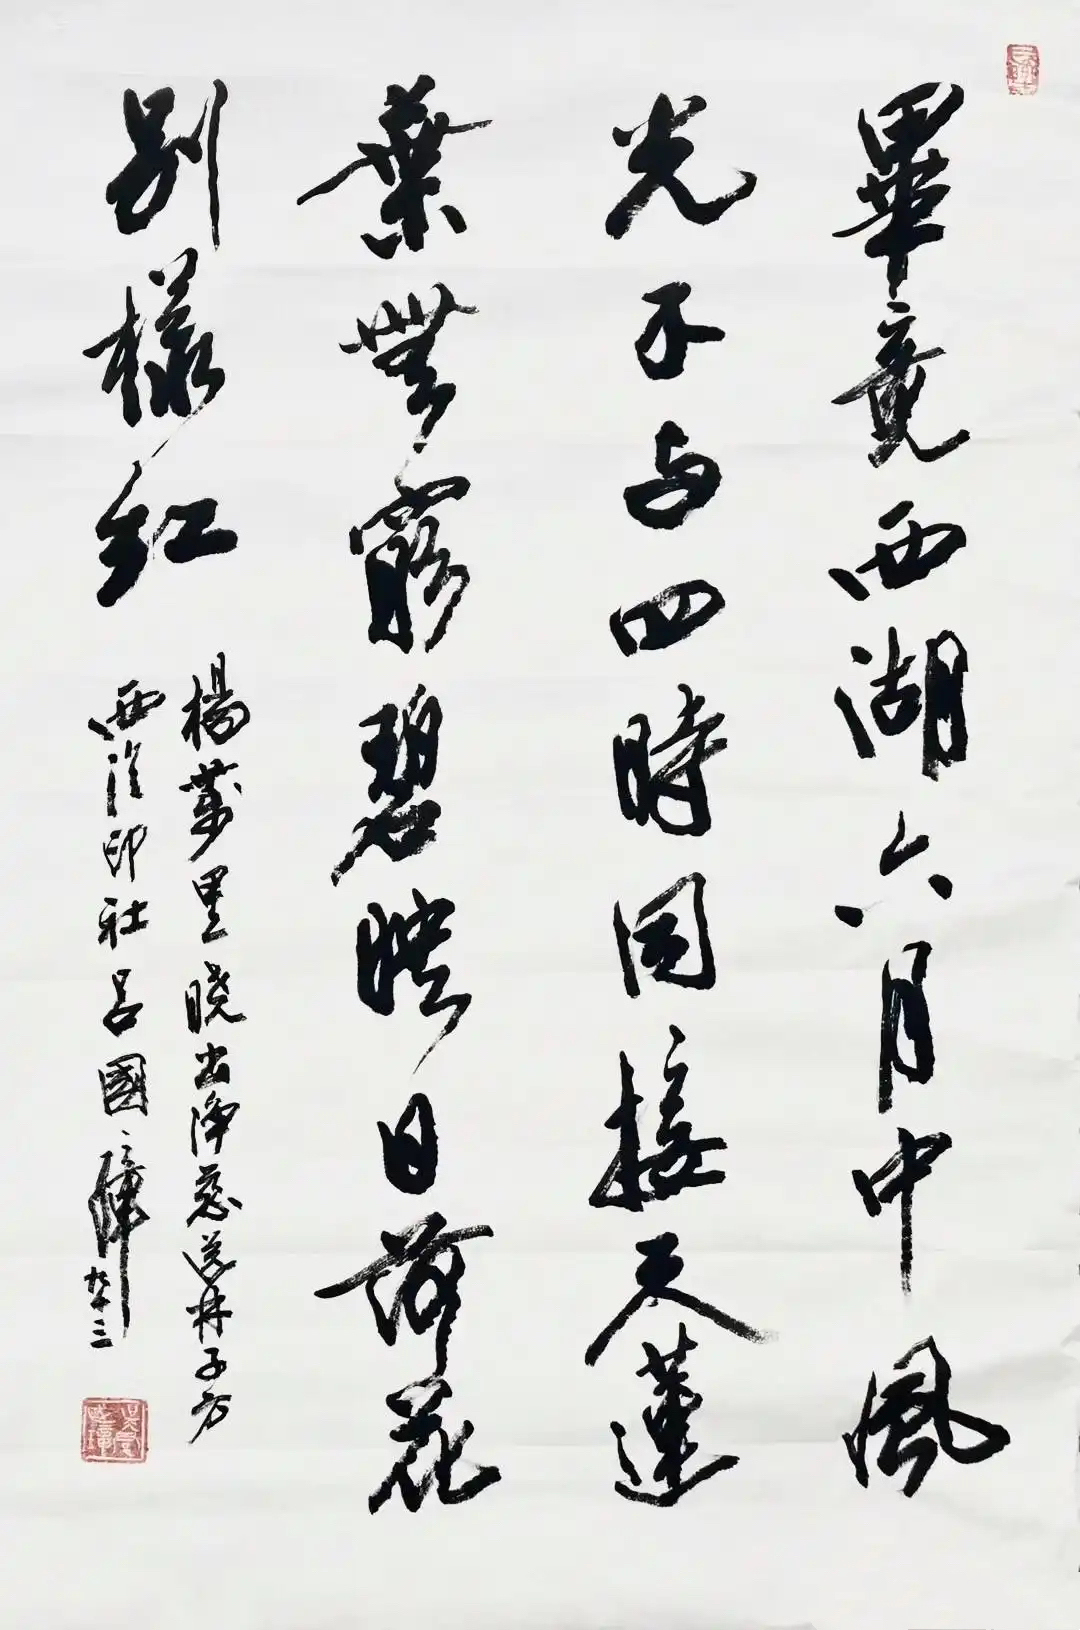 畢竟西湖六月中風
光不与四時同接天蓮
葉無窮碧映日荷花
別樣紅
楊萬里晓出浄慈送林子方
西泠印社呂國璋九十三